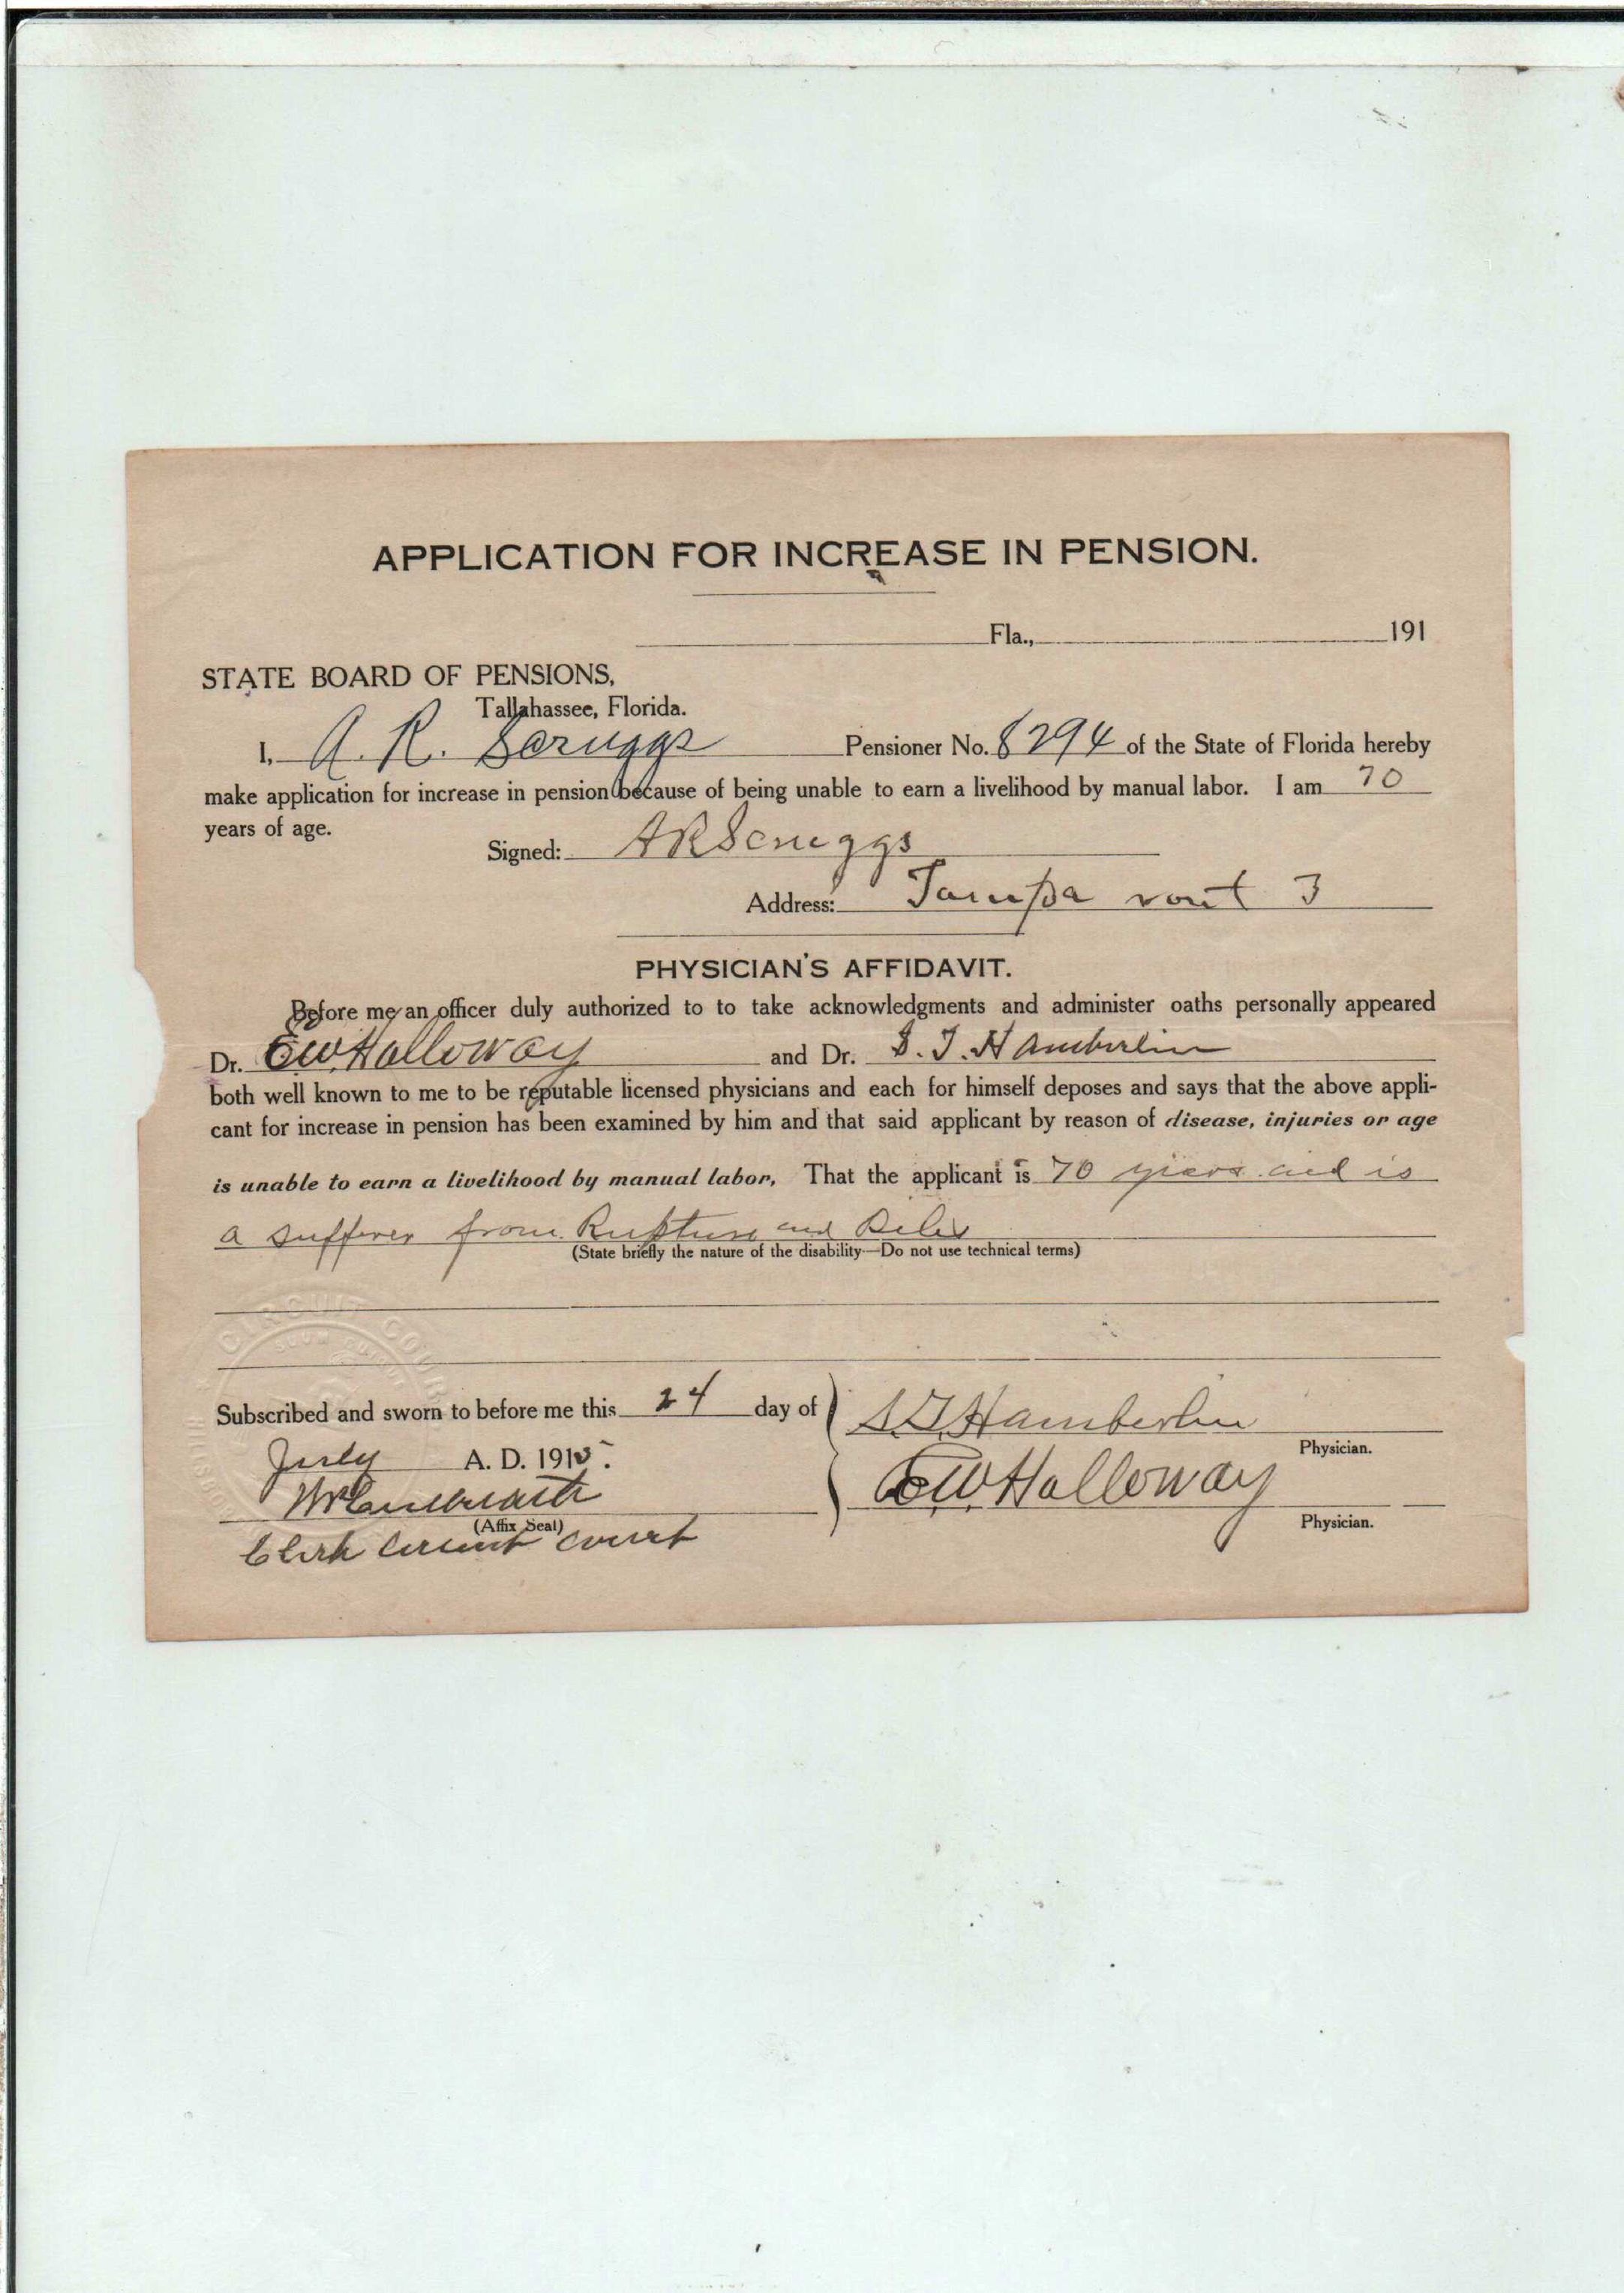 APPLICATION FOR INCREASE IN PENSION.
Fla., 191
STATE BOARD OF PENSIONS,
Tallahassee, Florida.
I, A. R. Scruggs Pensioner No. 8294 of the State of Florida hereby
make application for increase in pension because of being unable to earn a livelihood by manual labor. I am 70
years of age.
Signed: A R Scruggs
Address: Tampa rout 3
PHYSICIAN'S AFFIDAVIT.
Before me an officer duly authorized to to take acknowledgments and administer oaths personally appeared
Dr. E W Holloway and Dr. S. T. Hamberlin
both well known to me to be reputable licensed physicians and each for himself deposes and says that the above appli-
cant for increase in pension has been examined by him and that said applicant by reason of disease, injuries or age
is unable to earn a livelihood by manual labor, That the applicant is 70 years and is
a sufferer from Rupture and
(State briefly the nature of the disability—Do not use technical terms)
CIRCUIT COURT
Subscribed and sworn to before me this 24 day of
S. T. Hamberlin
Physician.
July A. D. 1915.
E W Holloway
Physician.
(Affix Seal)
Clerk Circuit Court